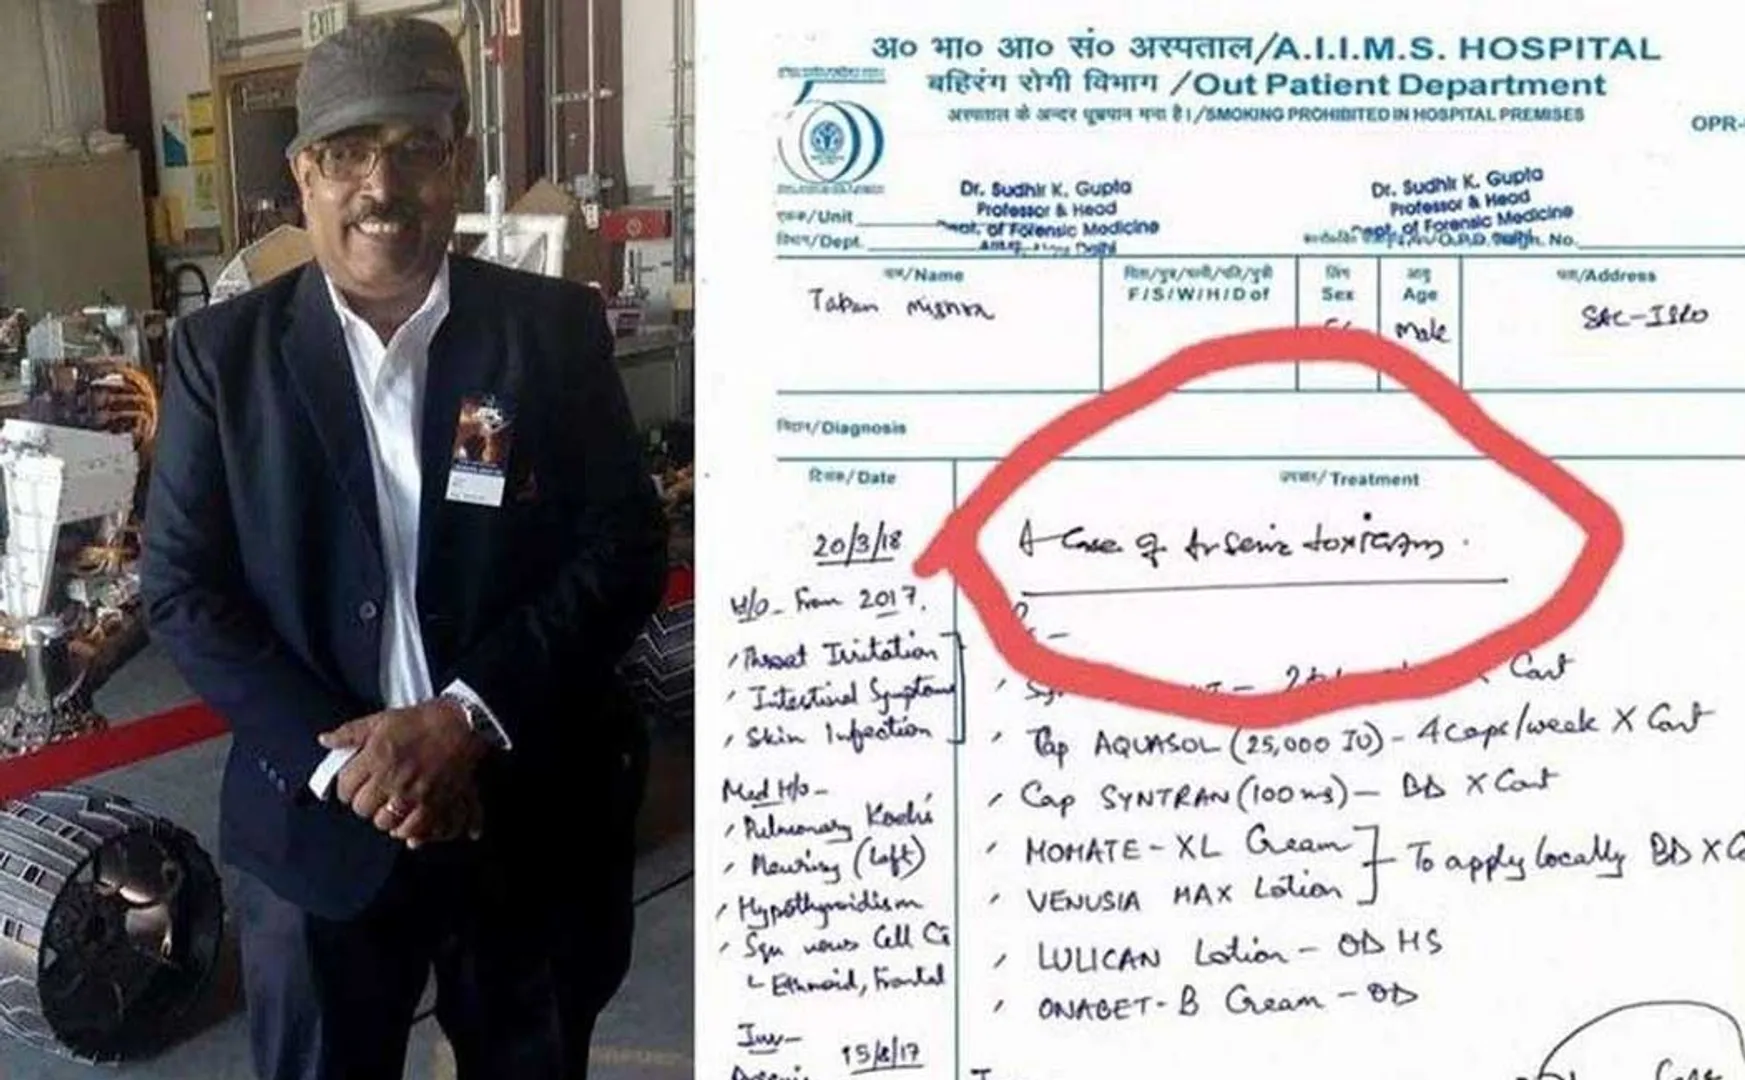 EXIT
अ० भा० आ० सं० अस्पताल/A.I.I.M.S. HOSPITAL
बहिरंग रोगी विभाग /Out Patient Department
अस्पताल के अन्दर धूम्रपान मना है।/SMOKING PROHIBITED IN HOSPITAL PREMISES
OPR-
Dr. Sudhir K. Gupta
Professor & Head
of Forensic Medicine
Dr. Sudhir K. Gupta
Professor & Head
of Forensic Medicine
एकक/Unit
विभाग/Dept.
No.
नाम/Name
F/S/W/H/D of
लिंग
Sex
आयु
Age
पता/Address
Tapan Mishra
Male
SAC-ISRO
निदान/Diagnosis
दिनांक/Date
उपचार/Treatment
20/3/18
A Case of Arsenic toxicism.
H/O - From 2017.
Throat Irritation
Intestinal Symptoms
Skin Infection
Cont
AQUASOL (25,000 IU) - 4 caps/week X Cont
Cap SYNTRAN (100 mg) - BD X Cont
MOMATE - XL Cream
VENUSIA MAX Lotion
To apply locally BD X
LULICAN Lotion - OD HS
ONABET - B Cream - OD
Med H/o -
Pulmonary
(Left)
Hypothyroidism
Cell Ca
Ethmoid, Frontal
Inv -
15/8/17